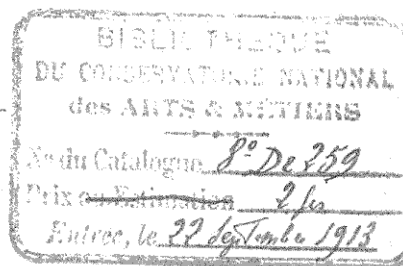 BIBLIOTHÈQUE
DU CONSERVATOIRE NATIONAL
des ARTS & MÉTIERS
N° du Catalogue 8° De 259
Prix ou Estimation 2 frs
Entrée, le 22 Septembre 1913